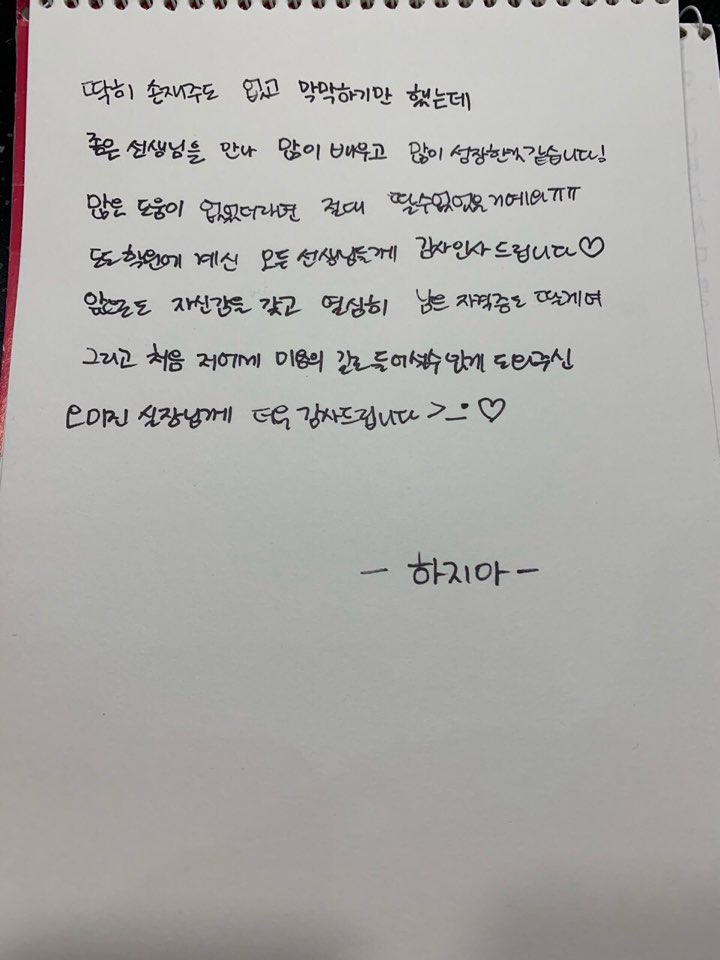 딱히 손재주도 없고 막막하기만 했는데
좋은 선생님을 만나 많이 배우고 많이 성장한것 같습니다!
많은 도움이 없었더라면 절대 딸수없었을거예요ㅠㅠ
또 학원에 계신 모든 선생님들께 감사인사 드립니다♡
앞으로도 자신감을 갖고 열심히 남은 자격증도 딸게여
그리고 처음 저에게 미용의 길로 들어설수 있게 도와주신
실장님께 더욱 감사드립니다 >_• ♡
- 하지아 -